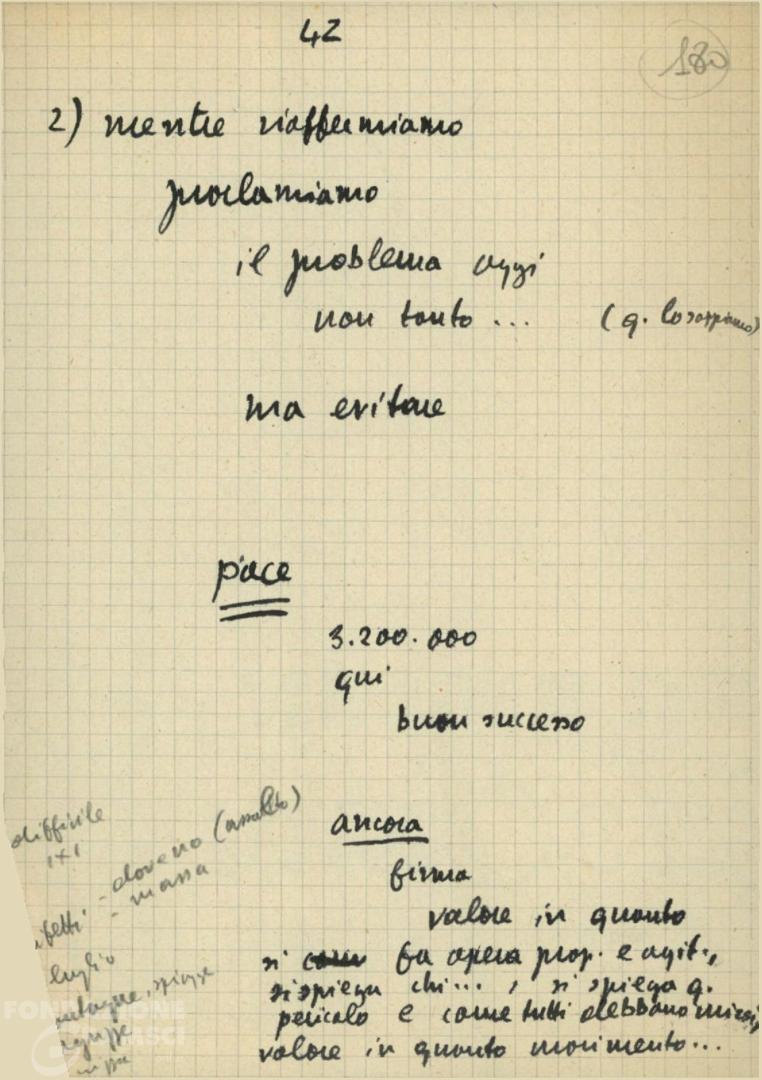 42
180
2) mentre riaffermiamo
proclamiamo
il problema oggi
non tanto ... (q. lo sappiamo)
ma evitare
pace
3.200.000
qui
buon successo
ancora
firma
valore in quanto
si fa opera prop. e agit.,
si spiega chi ... , si spiega q.
pericolo e come tutti debbano unirsi,
valore in quanto movimento...
difficile
1x1
- dove no (assalto)
- massa
luglio
spiagge
FONDAZIONE
GRAMSCI